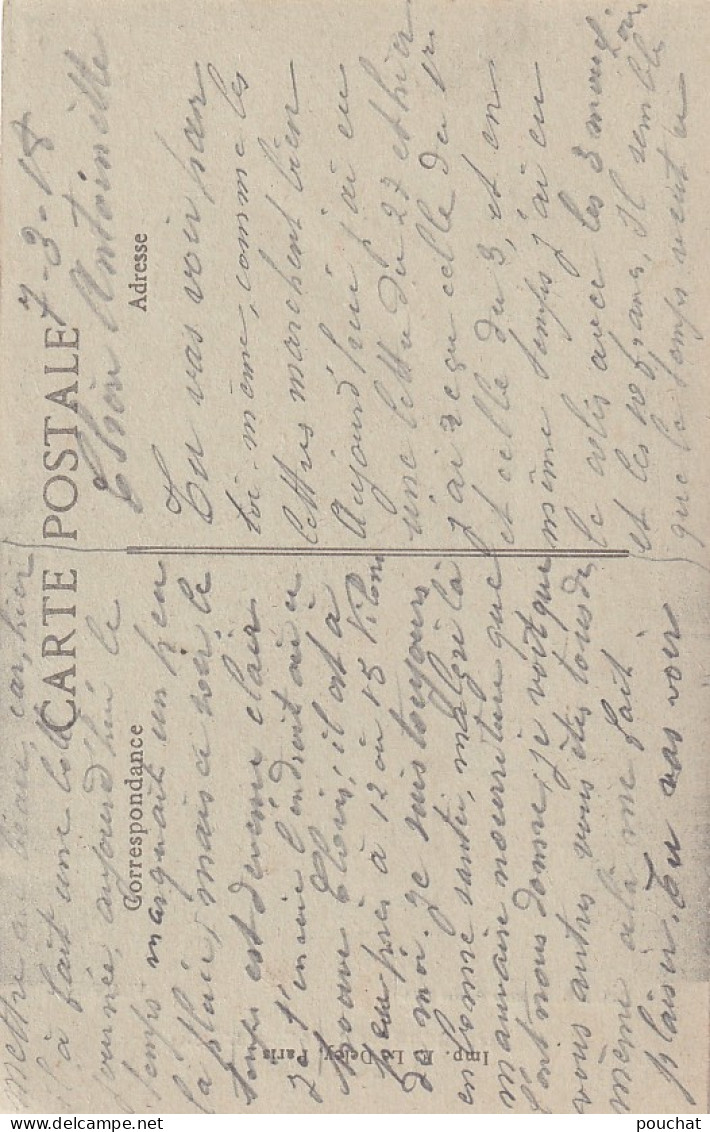 CARTE POSTALE
Correspondance
Adresse
7-3-18
Chère Antoinette
Tu vas voir par
toi-même, comme les
lettres marchent bien
Aujourd'hui j'ai eu
une lettre du 27 et hier
j'ai reçu celle du 1er
et celle du 3, et en
même temps j'ai eu
le colis avec les 3 mouchoirs
et les 10 francs. Il semble
que le temps veut u
mettre au beau, car, hier
il a fait une belle
journée, aujourd'hui le
temps marquait un peu
la pluie, mais ce soir le
temps est devenu clair
Je t'envoie l'endroit où
Clovis, il est à
peu près à 12 ou 15 kilom
de moi. Je suis toujours
en bonne santé, malgré la
mauvaise nourriture que
l'ont nous donne, je voit que
vous autres vous êtes tous de
même celà me fait
plaisir. Tu vas voir
Imp. E. Le Deley, Paris
pouchat